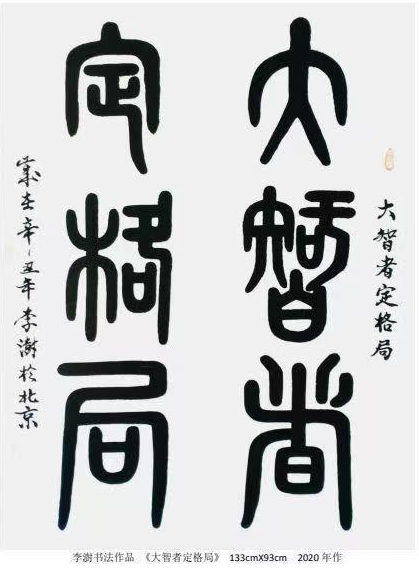 大智者
定格局
大智者定格局
岁在辛丑年李澍于北京
李澍书法作品 《大智者定格局》 133cmX93cm 2020年作